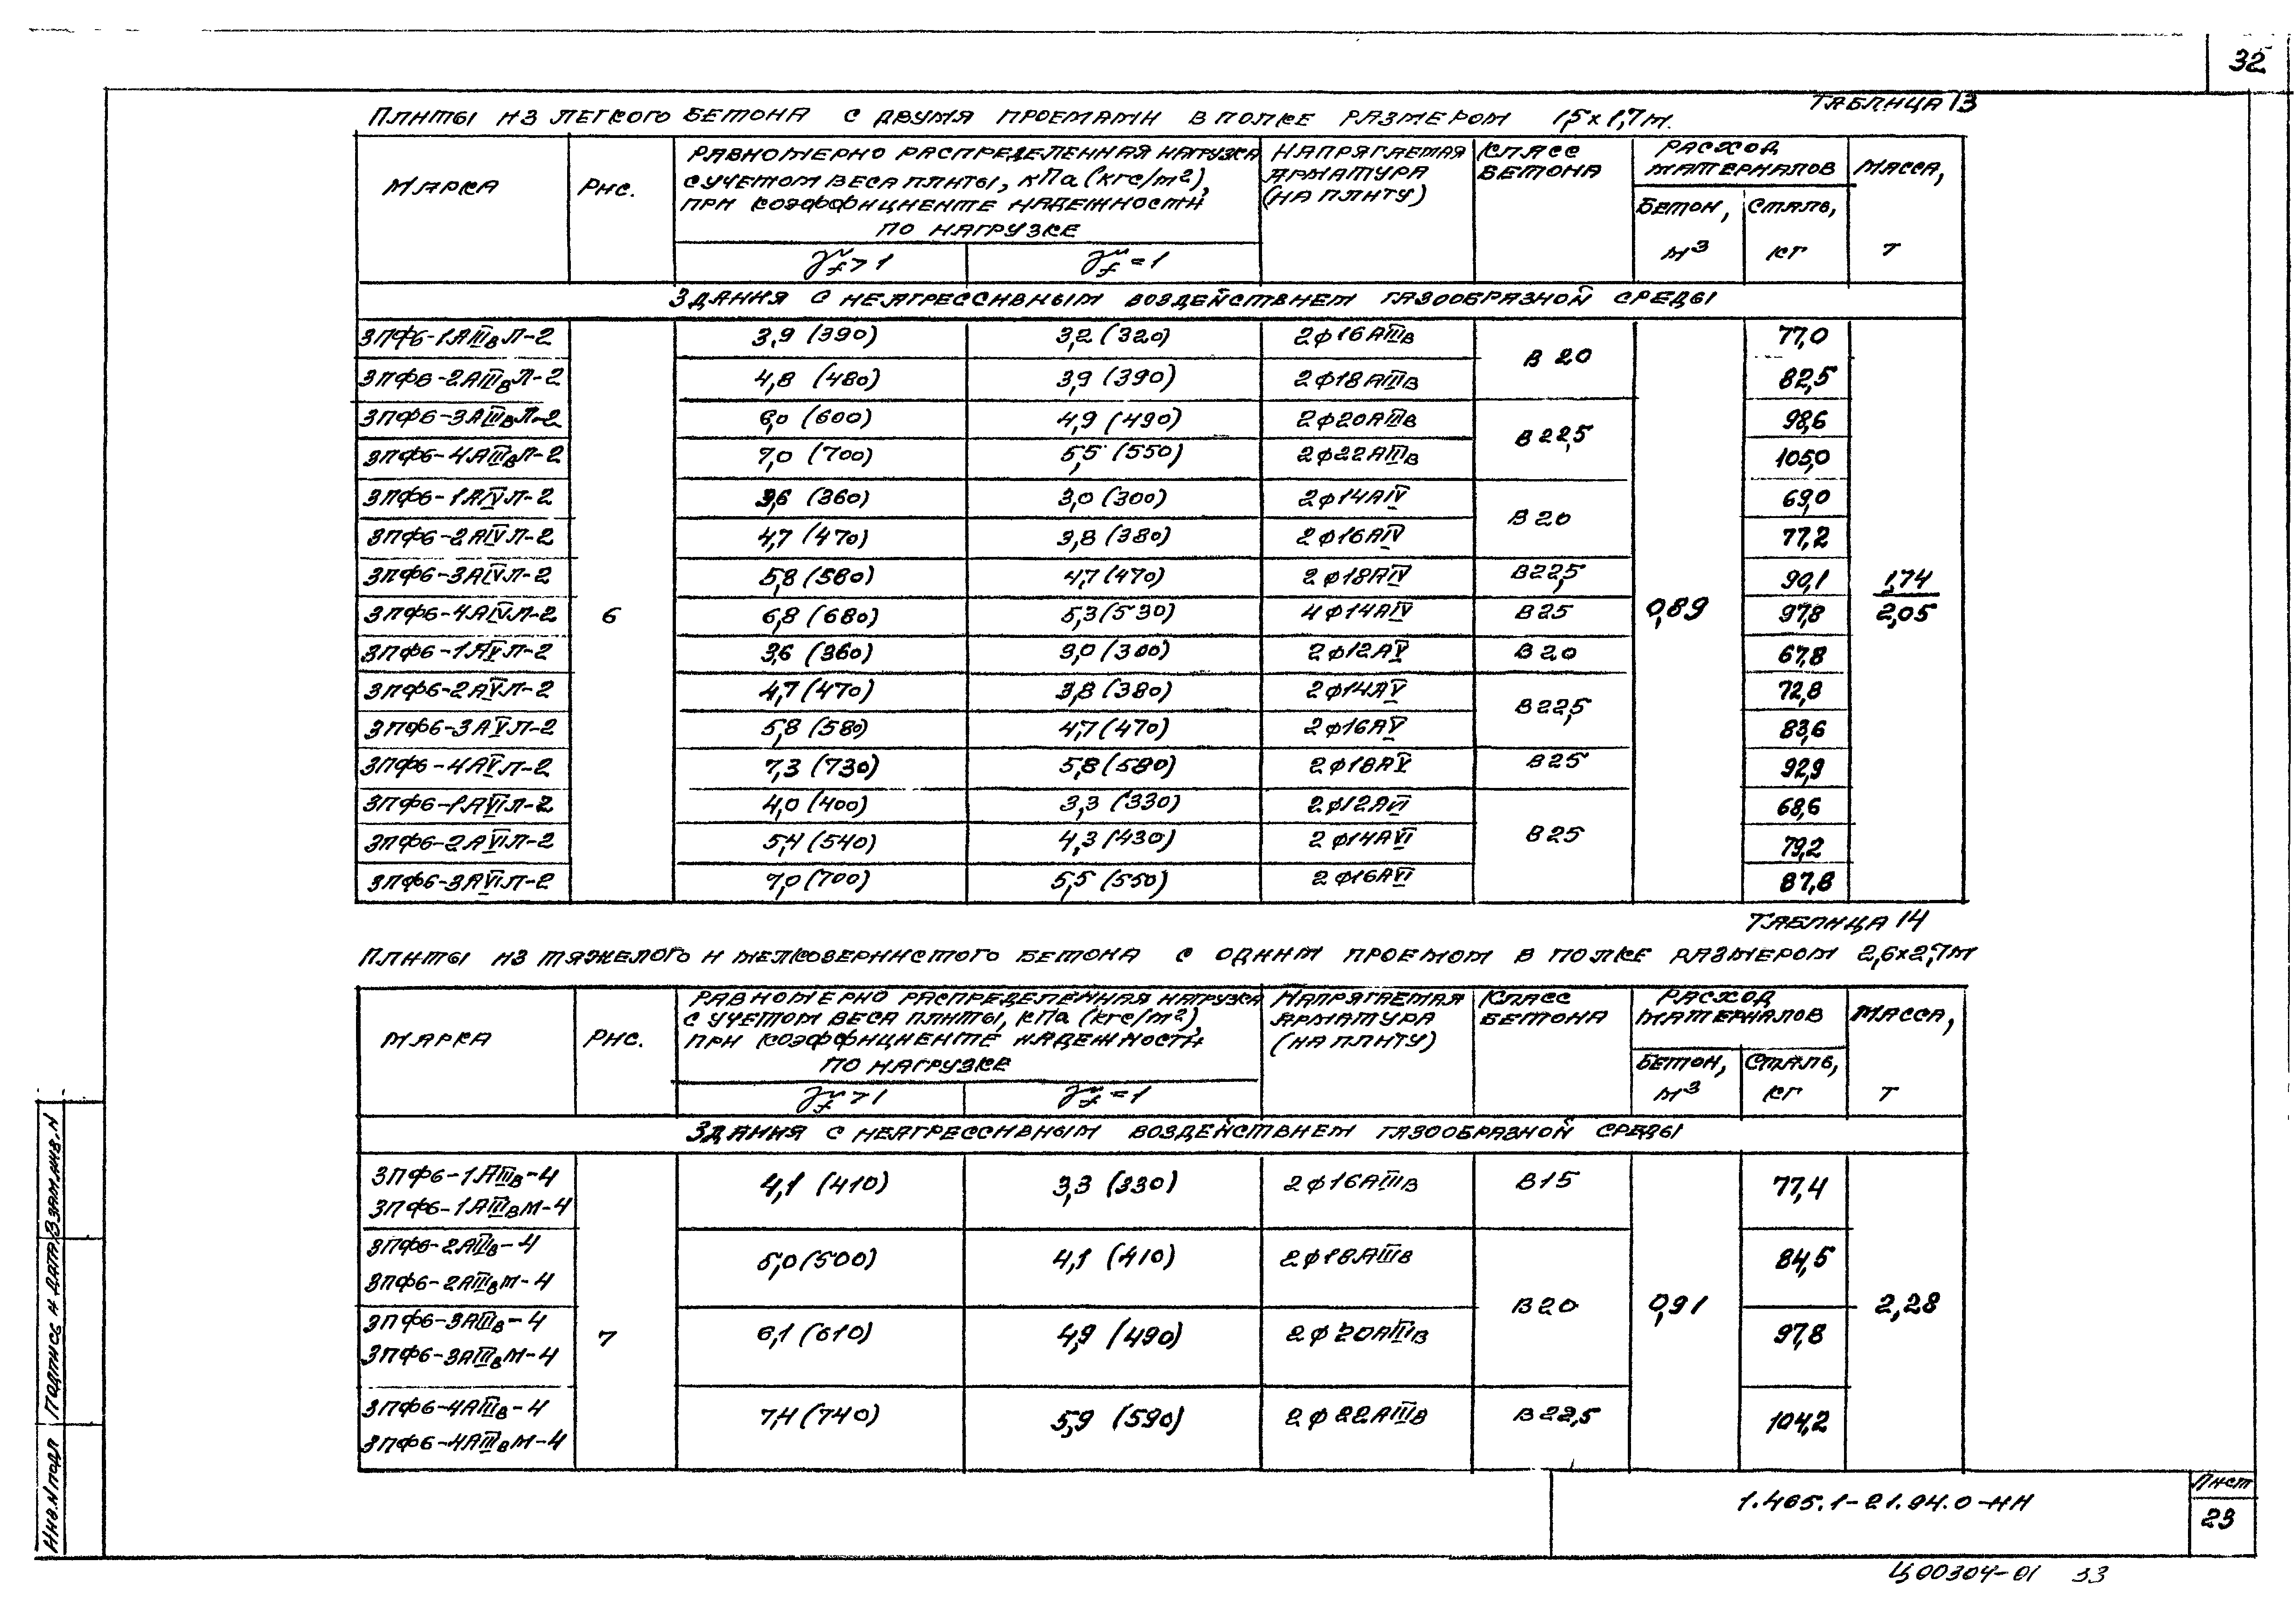 32
ТАБЛИЦА 13
ПЛИТЫ ИЗ ЛЕГКОГО БЕТОНА С ДВУМЯ ПРОЕМАМИ В ПОЛКЕ РАЗМЕРОМ 1,5×1,7м.
МАРКА РИС. РАВНОМЕРНО РАСПРЕДЕЛЕННАЯ НАГРУЗКА С УЧЕТОМ ВЕСА ПЛИТЫ, кПа (кгс/м²), ПРИ КОЭФФИЦИЕНТЕ НАДЕЖНОСТИ ПО НАГРУЗКЕ НАПРЯГАЕМАЯ АРМАТУРА (НА ПЛИТУ) КЛАСС БЕТОНА РАСХОД МАТЕРИАЛОВ МАССА, Т
γf > 1 γf = 1 БЕТОН, м³ СТАЛЬ, кг
ЗДАНИЯ С НЕАГРЕССИВНЫМ ВОЗДЕЙСТВИЕМ ГАЗООБРАЗНОЙ СРЕДЫ
3ПФ6-1АIIIвЛ-2 3,9 (390) 3,2 (320) 2φ16АIIIв В 20 77,0
3ПФ6-2АIIIвЛ-2 4,8 (480) 3,9 (390) 2φ18АIIIв 82,5
3ПФ6-3АIIIвЛ-2 6,0 (600) 4,9 (490) 2φ20АIIIв В 22,5 98,6
3ПФ6-4АIIIвЛ-2 7,0 (700) 5,5 (550) 2φ22АIIIв 105,0
3ПФ6-1АIVЛ-2 3,6 (360) 3,0 (300) 2φ14АIV В 20 69,0
3ПФ6-2АIVЛ-2 4,7 (470) 3,8 (380) 2φ16АIV 77,2
3ПФ6-3АIVЛ-2 5,8 (580) 4,7 (470) 2φ18АIV В22,5 90,1 1,74
3ПФ6-4АIVЛ-2 6 6,8 (680) 5,3 (530) 4φ14АIV В25 0,89 97,8 2,05
3ПФ6-1АVЛ-2 3,6 (360) 3,0 (300) 2φ12АV В 20 67,8
3ПФ6-2АVЛ-2 4,7 (470) 3,8 (380) 2φ14АV В22,5 72,8
3ПФ6-3АVЛ-2 5,8 (580) 4,7 (470) 2φ16АV 83,6
3ПФ6-4АVЛ-2 7,3 (730) 5,8 (580) 2φ18АV В25 92,9
3ПФ6-1АVIЛ-2 4,0 (400) 3,3 (330) 2φ12АVI В25 68,6
3ПФ6-2АVIЛ-2 5,4 (540) 4,3 (430) 2φ14АVI 79,2
3ПФ6-3АVIЛ-2 7,0 (700) 5,5 (550) 2φ16АVI 87,8
ТАБЛИЦА 14
ПЛИТЫ ИЗ ТЯЖЕЛОГО И МЕЛКОЗЕРНИСТОГО БЕТОНА С ОДНИМ ПРОЕМОМ В ПОЛКЕ РАЗМЕРОМ 2,6×2,7м
МАРКА РИС. РАВНОМЕРНО РАСПРЕДЕЛЕННАЯ НАГРУЗКА С УЧЕТОМ ВЕСА ПЛИТЫ, кПа (кгс/м²), ПРИ КОЭФФИЦИЕНТЕ НАДЕЖНОСТИ ПО НАГРУЗКЕ НАПРЯГАЕМАЯ АРМАТУРА (НА ПЛИТУ) КЛАСС БЕТОНА РАСХОД МАТЕРИАЛОВ МАССА, Т
γf > 1 γf = 1 БЕТОН, м³ СТАЛЬ, кг
ЗДАНИЯ С НЕАГРЕССИВНЫМ ВОЗДЕЙСТВИЕМ ГАЗООБРАЗНОЙ СРЕДЫ
3ПФ6-1АIIIв-4 4,1 (410) 3,3 (330) 2φ16АIIIв В15 77,4
3ПФ6-1АIIIвМ-4
3ПФ6-2АIIIв-4 5,0 (500) 4,1 (410) 2φ18АIIIв 84,5
3ПФ6-2АIIIвМ-4 В20 0,91 2,28
3ПФ6-3АIIIв-4 7 6,1 (610) 4,9 (490) 2φ20АIIIв 97,8
3ПФ6-3АIIIвМ-4
3ПФ6-4АIIIв-4 7,4 (740) 5,9 (590) 2φ22АIIIв В22,5 104,2
3ПФ6-4АIIIвМ-4
ИНВ.N ПОДЛ ПОДПИСЬ И ДАТА ВЗАМ.ИНВ.N
1.465.1-21.94.0-НИ
ЛИСТ
23
Ц00304-01 33